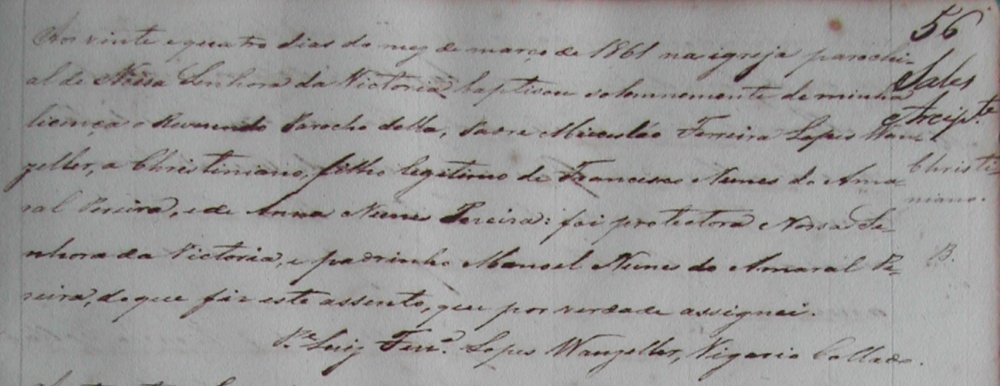 56
Aos vinte e quatro dias do mez de março de 1861 na igreja parochi-
al de Nossa Senhora da Victoria baptisou solemnemente de minha
licença o Reverendo Parocho della, Padre Miceslão Ferreira Lopes Wan-
zeller, a Christiniano, filho legitimo de Francisco Nunes do Ama-
ral Pereira, e de Anna Nunes Pereira: foi protectora Nossa Se-
nhora da Victoria, e padrinho Manoel Nunes do Amaral Pe-
reira, do que fiz este assento, que por verdade assignei.
Pe. Luiz Ferra. Lopes Wanzeller, Vigario Collado.
Sales
Christi
niano.
B.